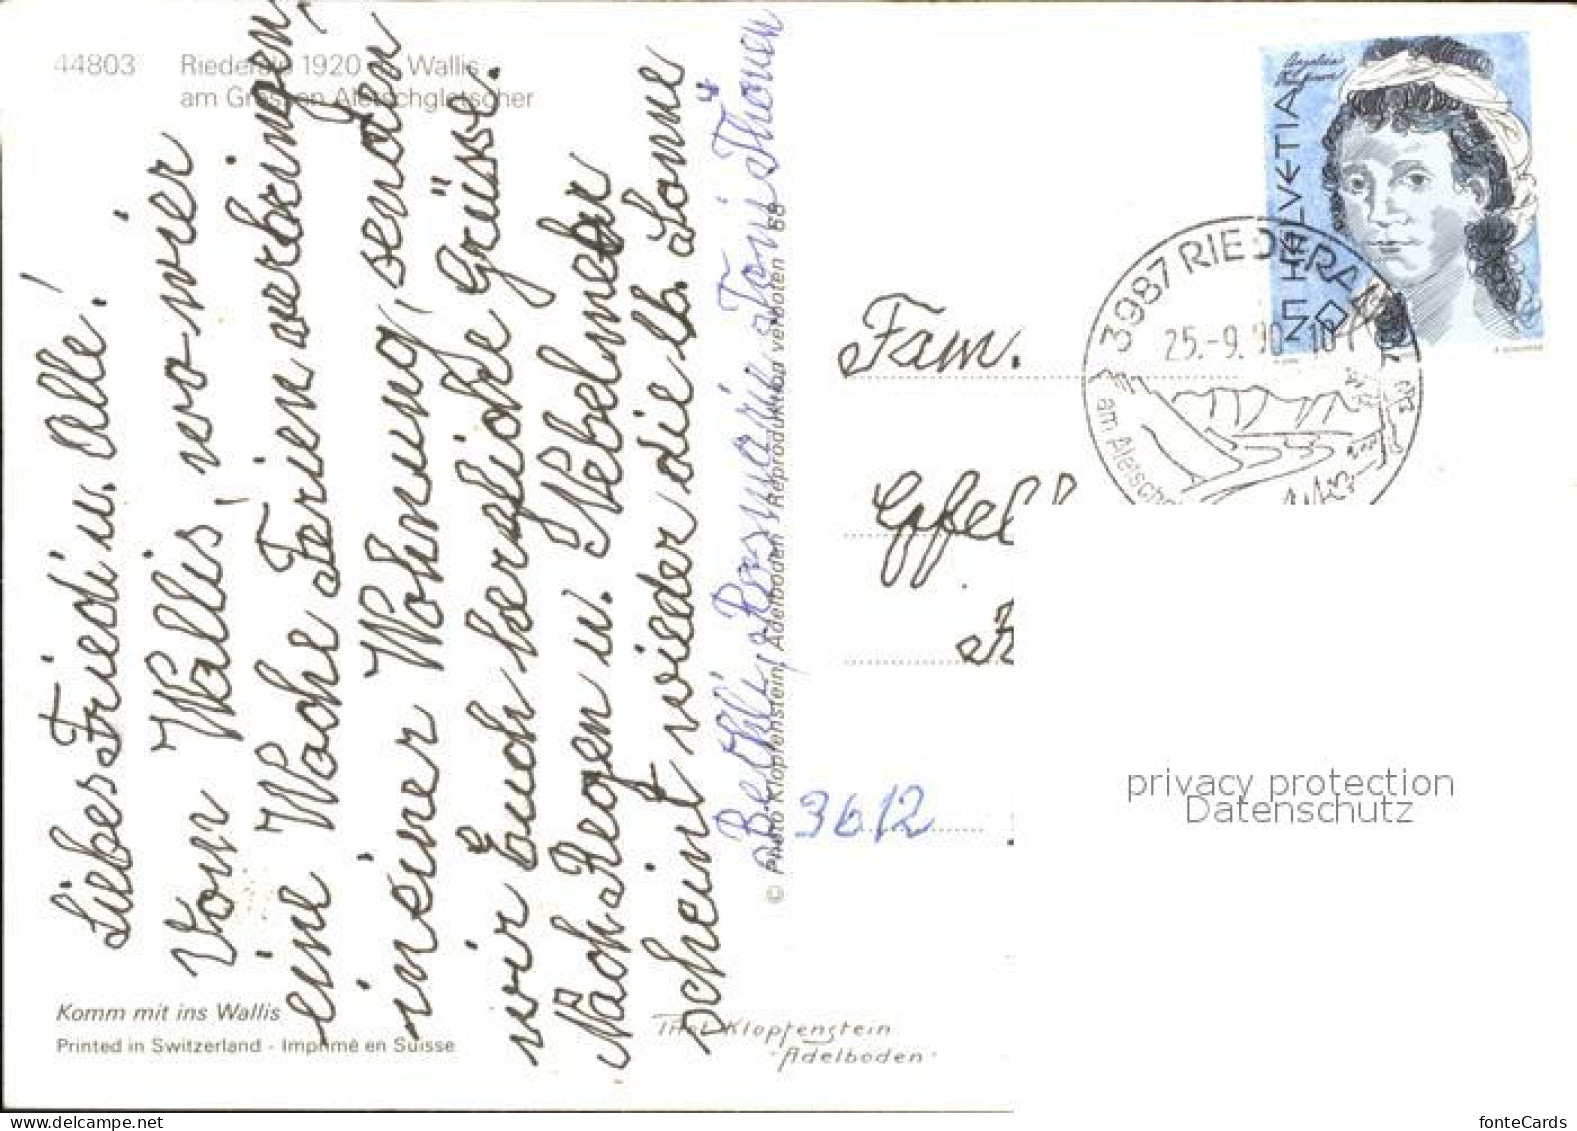 44803 Riederalp 1920 m Wallis
am Grossen Aletschgletscher
Liebes Friedi u. Alle!
Vom Wallis, wo wir
eine Woche Ferien verbringen,
in einer Wohnung, senden
wir Euch herzliche Grüsse.
Nach Regen u. Nebelmeer
scheint wieder die lb. Sonne
Bethli, Rosmarie u. Toni Thönen
© Photo Klopfenstein, Adelboden Reproduktion verboten 88
Komm mit ins Wallis
Printed in Switzerland - Imprimé en Suisse
Thek Klopfenstein
Adelboden
HELVETIA 50
3987 RIEDERALP
25.-9.90-10
am Aletschg
Fam.
3612
privacy protection
Datenschutz
fonteCards